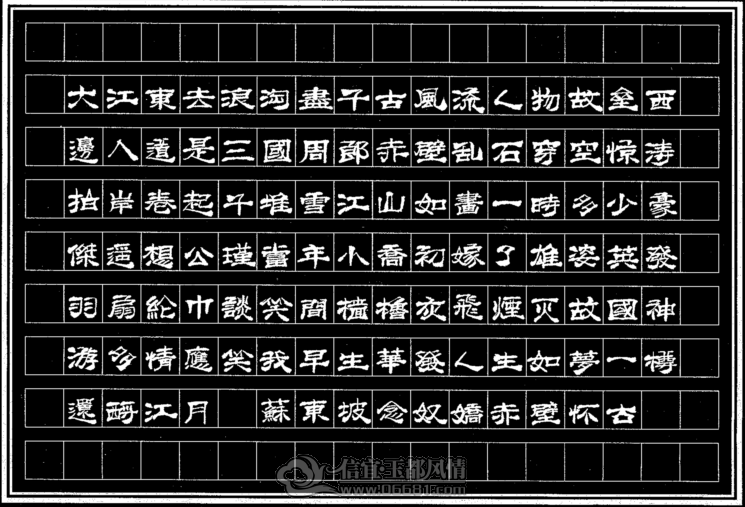 大江東去浪淘盡千古風流人物故垒西
邊人道是三國周郎赤壁乱石穿空惊涛
拍岸卷起千堆雪江山如畫一時多少豪
傑遥想公瑾當年小喬初嫁了雄姿英發
羽扇綸巾談笑間樯櫓灰飛煙灭故國神
游多情應笑我早生華發人生如夢一樽
還酹江月 蘇東坡念奴嬌赤壁怀古
信宜玉都风情
www.06681.com